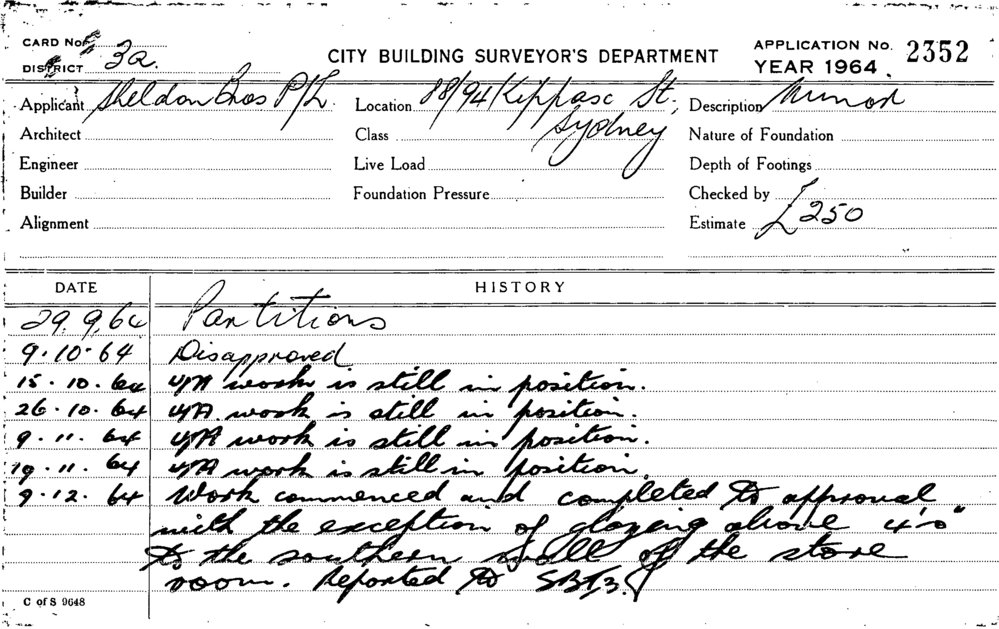 CARD No.
DISTRICT 3a.
CITY BUILDING SURVEYOR'S DEPARTMENT
APPLICATION No. 2352
YEAR 1964.
Applicant Sheldon Bros P/L
Location 88/94 Kippax St,
Description Minor
Architect
Class Sydney
Nature of Foundation
Engineer
Live Load
Depth of Footings
Builder
Foundation Pressure
Checked by
Alignment
Estimate £250
DATE HISTORY
29.9.64 Partitions
9.10.64 Disapproved
15.10.64 U/A work is still in position.
26.10.64 U/A work is still in position.
9.11.64 U/A work is still in position.
19.11.64 U/A work is still in position.
9.12.64 Work commenced and completed to approval
with the exception of glazing above 4'0"
to the southern wall of the store
room. Reported to
C of S 9648